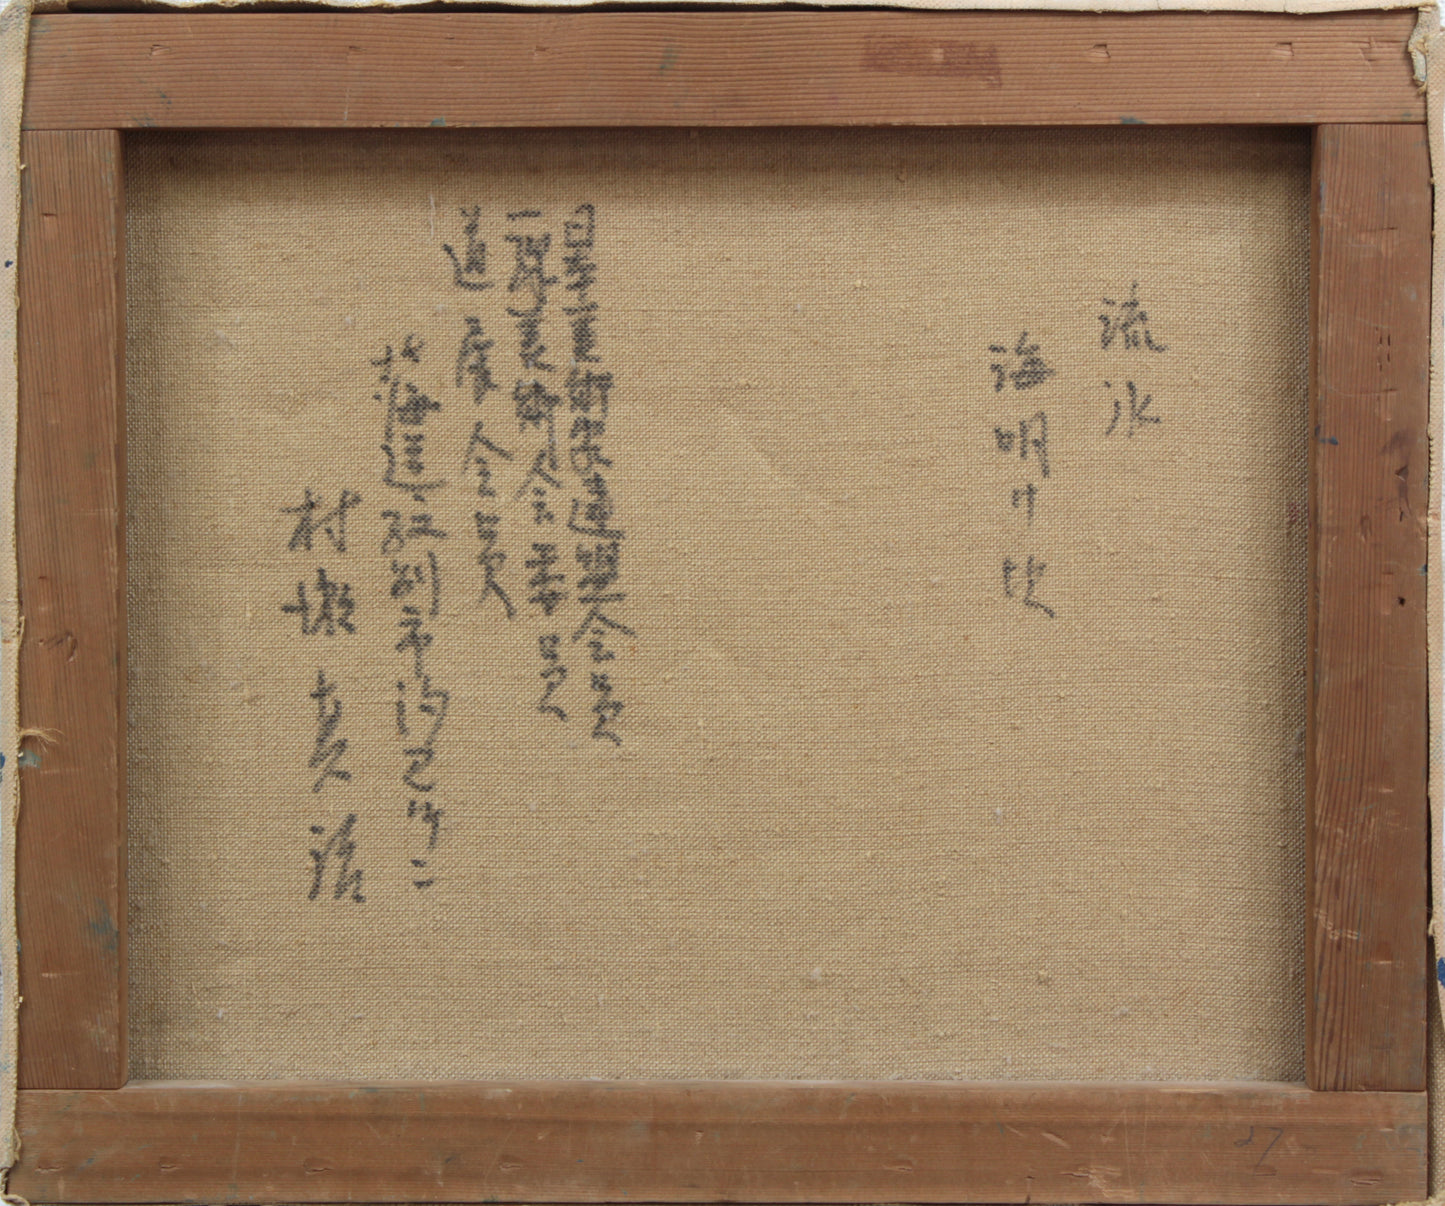 流氷
海明ケ比
日本美術家連盟会員
一線美術会委員
道展会員
北海道紋別市
村瀬真治
27